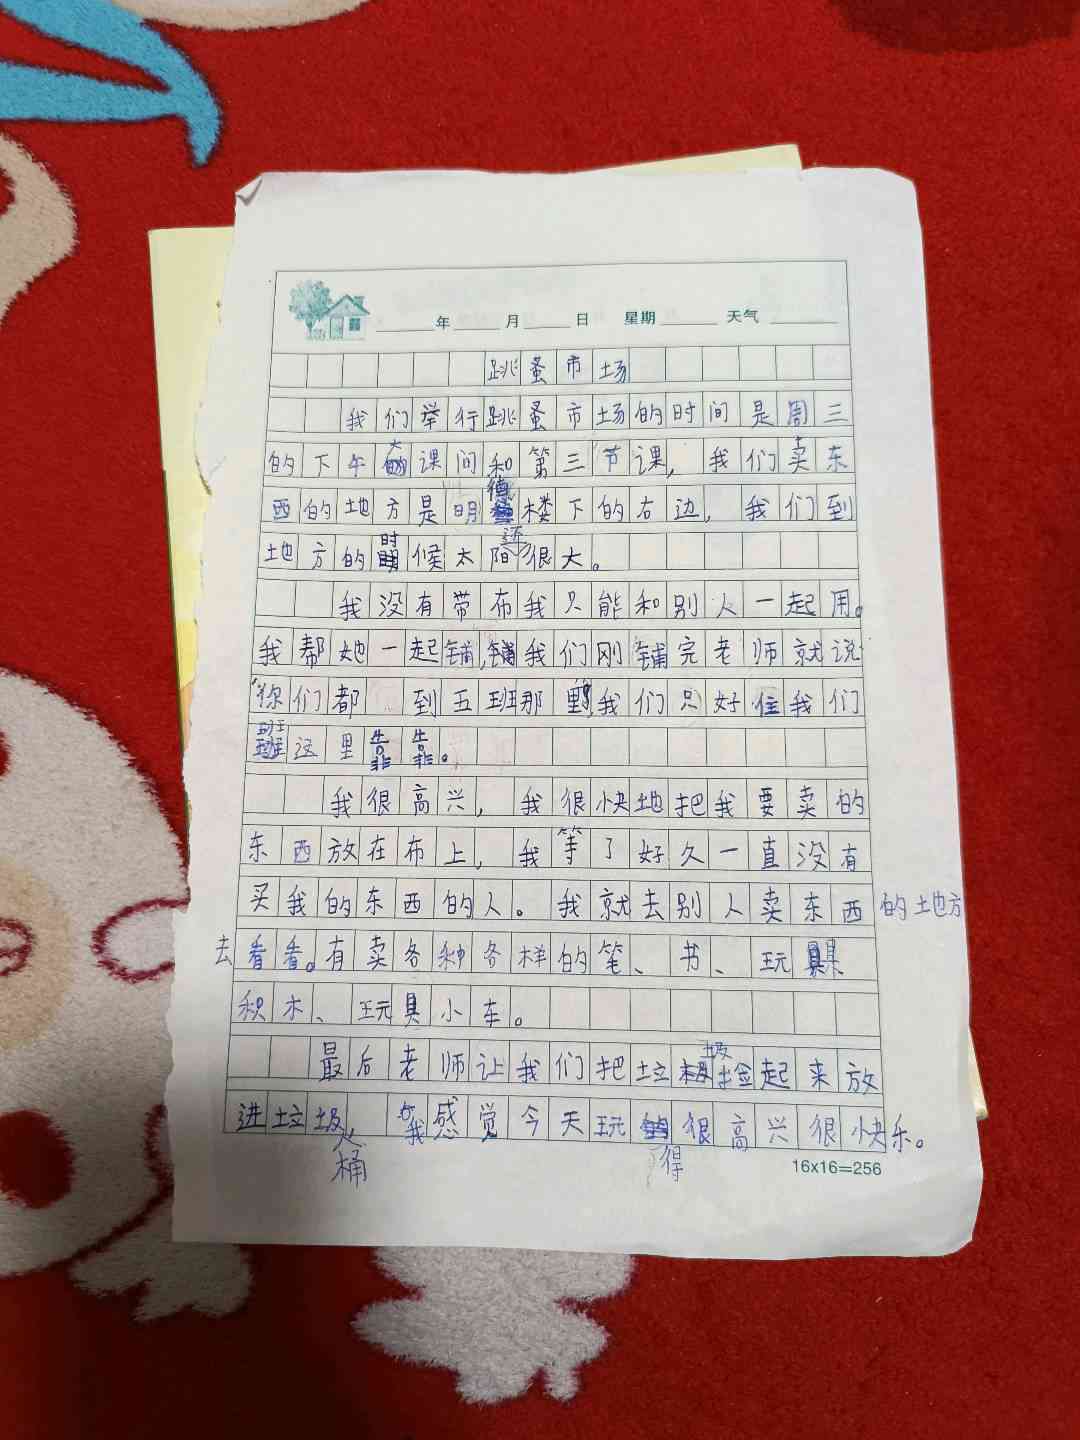 年 月 日 星期 天气
跳蚤市场
我们举行跳蚤市场的时间是周三
的下午大课间和第三节课，我们卖东
西的地方是明德楼下的右边，我们到
地方的时候太阳还很大。
我没有带布我只能和别人一起用。
我帮她一起铺，铺我们刚铺完老师就说
“你们都 到五班那里，我们只好往我们
班这里靠靠。
我很高兴，我很快地把我要卖的
东西放在布上，我等了好久一直没有
买我的东西的人。我就去别人卖东西的地方
去看看。有卖各种各样的笔、书、玩具
积木、玩具小车。
最后老师让我们把垃圾捡起来放
进垃圾桶，我感觉今天玩得很高兴很快乐。
16x16=256